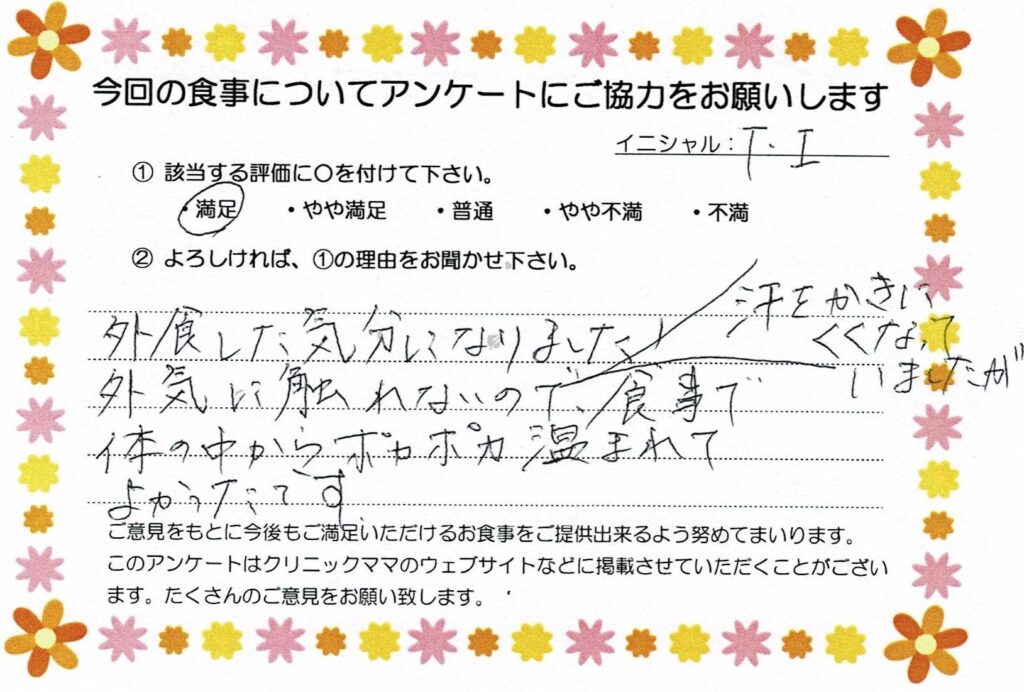 今回の食事についてアンケートにご協力をお願いします
イニシャル：T.I
① 該当する評価に〇を付けて下さい。
・満足 ・やや満足 ・普通 ・やや不満 ・不満
② よろしければ、①の理由をお聞かせ下さい。
外食した気分になりました！
外気に触れないので、
汗をかきに
くくなって
いましたが
食事で
体の中からポカポカ温まれて
よかったです。
ご意見をもとに今後もご満足いただけるお食事をご提供出来るよう努めてまいります。
このアンケートはクリニックママのウェブサイトなどに掲載させていただくことがござい
ます。たくさんのご意見をお願い致します。